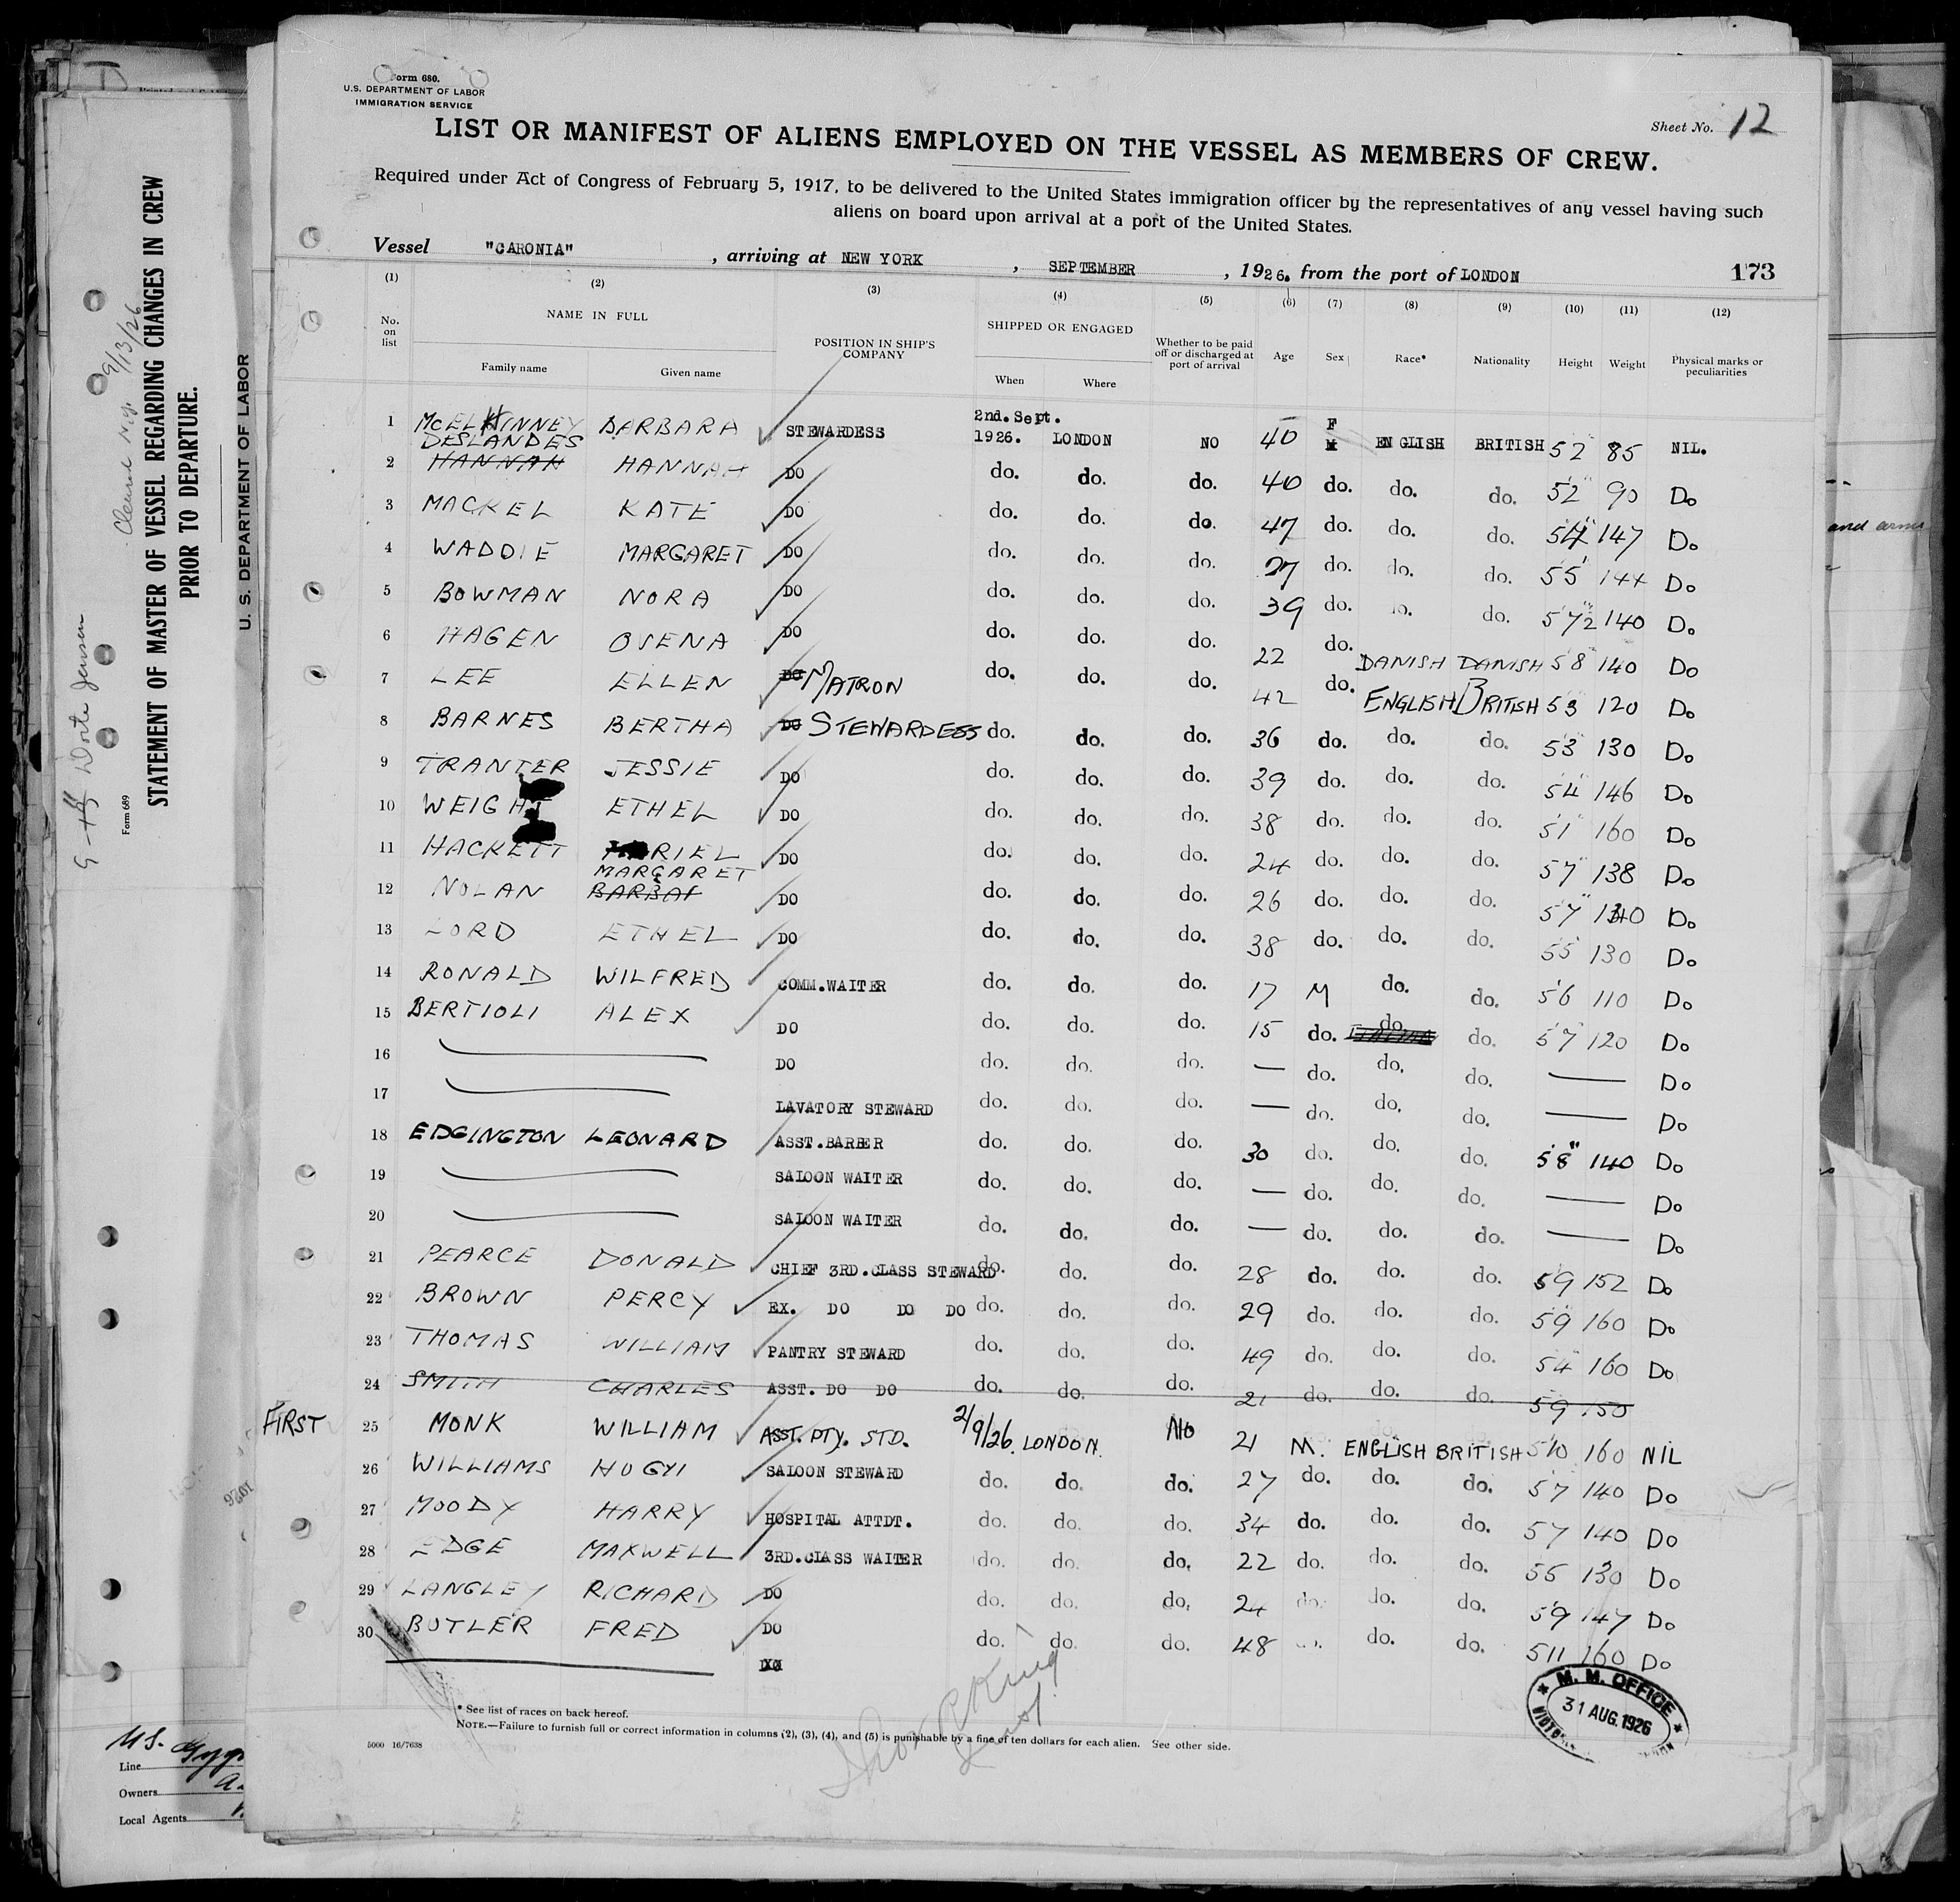 Form 680.
U.S. DEPARTMENT OF LABOR
IMMIGRATION SERVICE
Sheet No. 12
LIST OR MANIFEST OF ALIENS EMPLOYED ON THE VESSEL AS MEMBERS OF CREW.
Required under Act of Congress of February 5, 1917, to be delivered to the United States immigration officer by the representatives of any vessel having such
aliens on board upon arrival at a port of the United States.
Vessel "CARONIA", arriving at NEW YORK, SEPTEMBER, 1926. from the port of LONDON 173
(1) (2) (3) (4) (5) (6) (7) (8) (9) (10) (11) (12)
No. on list NAME IN FULL POSITION IN SHIP'S COMPANY SHIPPED OR ENGAGED Whether to be paid off or discharged at port of arrival Age Sex Race* Nationality Height Weight Physical marks or peculiarities
Family name Given name When Where
1 McELHINNEY BARBARA STEWARDESS 2nd. Sept. 1926. LONDON NO 40 F M ENGLISH BRITISH 5'2" 85 NIL.
DESLANDES
2 HANNAH HANNAH DO do. do. do. 40 do. do. do. 5'2" 90 Do
3 MACKEL KATE DO do. do. do. 47 do. do. do. 5'4" 147 Do
4 WADDIE MARGARET DO do. do. do. 27 do. do. do. 5'5 144 Do
5 BOWMAN NORA DO do. do. do. 39 do. do. do. 5'7½ 140 Do
6 HAGEN OSENA DO do. do. do. 22 do. DANISH DANISH 5'8" 140 Do
7 LEE ELLEN DO MATRON do. do. do. 42 do. ENGLISH BRITISH 5'3 120 Do
8 BARNES BERTHA DO STEWARDESS do. do. do. 36 do. do. do. 5'3" 130 Do
9 TRANTER JESSIE DO do. do. do. 39 do. do. do. 5'4" 146 Do
10 WEIGHT ETHEL DO do. do. do. 38 do. do. do. 5'1" 160 Do
11 HACKETT RIEL DO do. do. do. 24 do. do. do. 5'7" 138 Do
MARGARET
12 NOLAN DO do. do. do. 26 do. do. do. 5'7" 130 Do
13 LORD ETHEL DO do. do. do. 38 do. do. do. 5'5 130 Do
14 RONALD WILFRED COMM.WAITER do. do. do. 17 M do. do. 5'6 110 Do
15 BERTIOLI ALEX DO do. do. do. 15 do. do. do. 5'7" 120 Do
16 DO do. do. do. — do. do. do. — Do
17 LAVATORY STEWARD do. do. do. — do. do. do. — Do
18 EDGINGTON LEONARD ASST.BARBER do. do. do. 30 do. do. do. 5'8" 140 Do
19 SALOON WAITER do. do. do. — do. do. do. — Do
20 SALOON WAITER do. do. do. — do. do. do. — Do
21 PEARCE DONALD CHIEF 3RD.CLASS STEWARD do. do. do. 28 do. do. do. 5'9 152 Do
22 BROWN PERCY EX. DO DO DO do. do. do. 29 do. do. do. 5'9" 160 Do
23 THOMAS WILLIAM PANTRY STEWARD do. do. do. 49 do. do. do. 5'4" 160 Do
24 SMITH CHARLES ASST. DO DO do. do. do. 21 do. do. do. 5'9 150
FIRST 25 MONK WILLIAM ASST. PTY. STD. 2/9/26. LONDON. No 21 M. ENGLISH BRITISH 5'10 160 NIL
26 WILLIAMS HUGH SALOON STEWARD do. do. do. 27 do. do. do. 5'7 140 Do
27 MOODY HARRY HOSPITAL ATTDT. do. do. do. 34 do. do. do. 5'7 140 Do
28 EDGE MAXWELL 3RD.CLASS WAITER do. do. do. 22 do. do. do. 5'5 130 Do
29 LANGLEY RICHARD DO do. do. do. 24 do. do. do. 5'9 147 Do
30 BUTLER FRED DO do. do. do. 48 do. do. do. 5'11 160 Do
* See list of races on back hereof.
NOTE.—Failure to furnish full or correct information in columns (2), (3), (4), and (5) is punishable by a fine of ten dollars for each alien. See other side.
5000 16/7638
M. M. OFFICE
31 AUG. 1926
STATEMENT OF MASTER OF VESSEL REGARDING CHANGES IN CREW
PRIOR TO DEPARTURE.
U. S. DEPARTMENT OF LABOR
Form 689
9/13/26
and arms
1926
Line
Owners
Local Agents